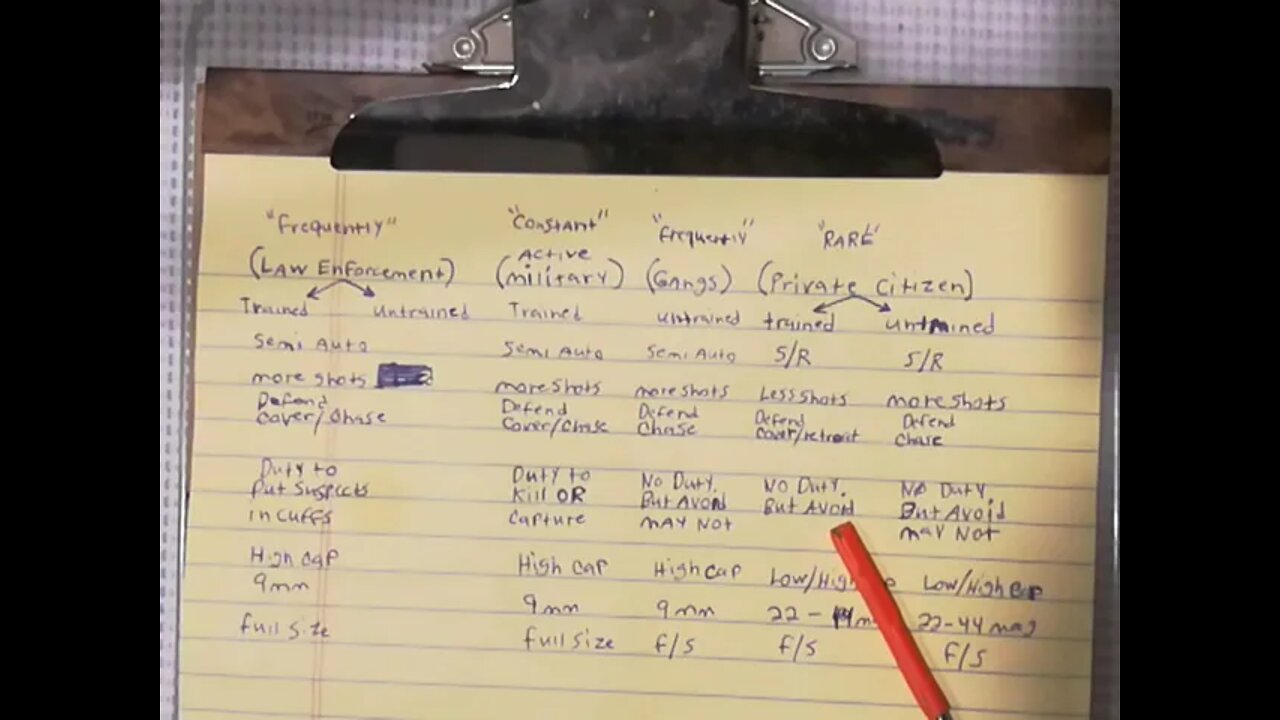 "Frequently" "Constant" "Frequently" "RARE"
(Law Enforcement) Active (military) (Gangs) (Private Citizen)
Trained untrained Trained untrained trained untrained
Semi Auto Semi Auto Semi Auto S/R S/R
more shots more shots more shots Less shots more shots
Defend Defend Defend Defend Defend
Cover/Chase Cover/Chase Chase Cover/retreat Chase
Duty to Duty to No Duty. No Duty. No Duty.
Put Suspects Kill OR But Avoid But Avoid But Avoid
in cuffs Capture may Not may Not
High cap High cap High cap Low/High Low/High cap
9mm 9mm 9mm 22 - 22-44 mag
full size full size f/s f/s f/s